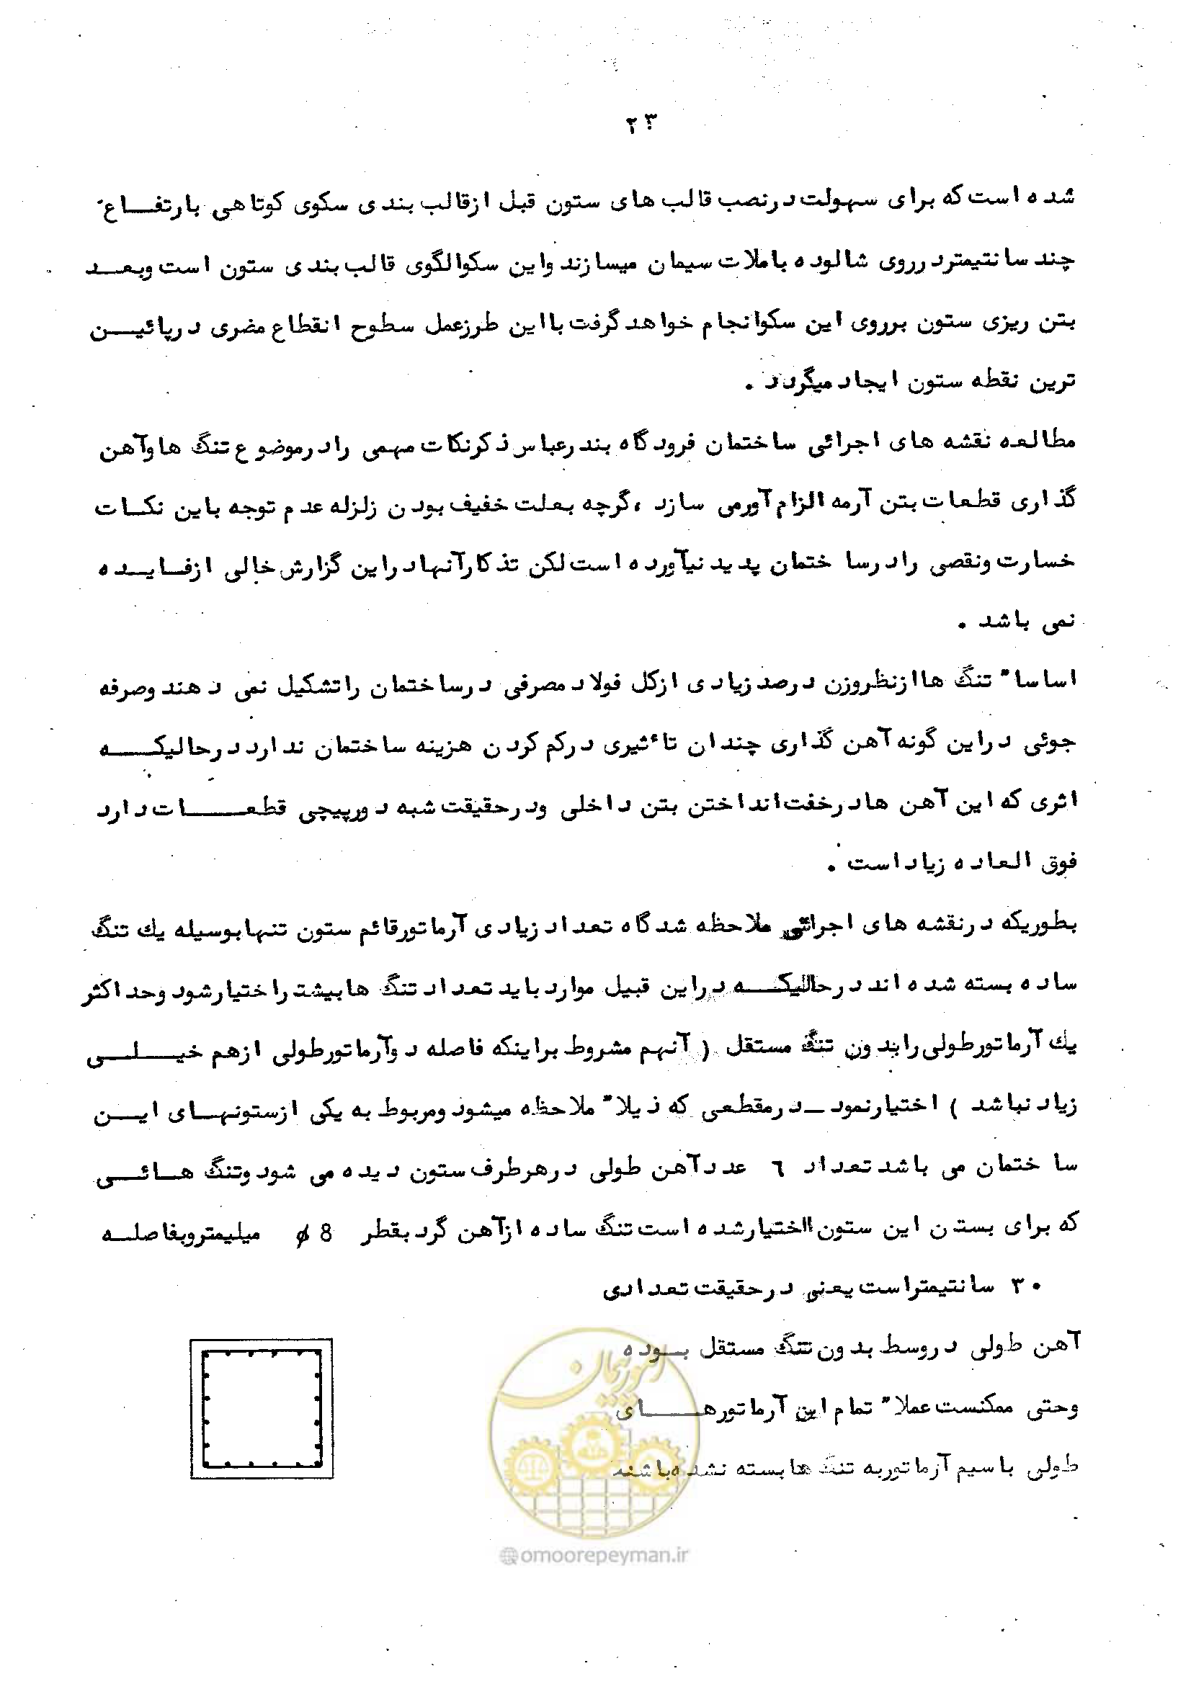 ۲۳
شده است که برای سهولت درنصب قالب های ستون قبل ازقالب بندی سکوی کوتاهی بارتفـاع
چند سانتیمتردرروی شالوده باملات سیمان میسازند واین سکوالگوی قالب بندی ستون است وبعـد
بتن ریزی ستون برروی این سکوانجام خواهد گرفت بااین طرزعمل سطوح انقطاع مضری درپائیـن
ترین نقطه ستون ایجاد میگردد .
مطالعه نقشه های اجرائی ساختمان فرودگاه بندرعباس ذکرنکات مهمی رادرموضوع تنگ هاوآهن
گذاری قطعات بتن آرمه الزام آورمی سازد ،گرچه بعلت خفیف بودن زلزله عدم توجه باین نکـات
خسارت ونقصی رادرسا ختمان پدید نیآورده است لکن تذکارآنهادراین گزارش خالی ازفـایـده
نمی باشد .
اساسا" تنگ هاازنظروزن درصدزیادی ازکل فولاد مصرفی درساختمان راتشکیل نمی دهند وصرفه
جوئی دراین گونه آهن گذاری چندان تاٴثیری درکم کردن هزینه ساختمان ندارد درحالیکـــه
اثری که این آهن هادرخفت انداختن بتن داخلی ودرحقیقت شبه دورپیچی قطعــــات دارد
فوق العاده زیاداست .
بطوریکه درنقشه های اجرائی ملاحظه شدگاه تعدادزیادی آرماتورقائم ستون تنهابوسیله یك تنگ
ساده بسته شده اند درحالیکـــه دراین قبیل موارد باید تعداد تنگ هابیشتراختیارشود وحداکثر
یك آرماتورطولی رابدون تنگ مستقل ( آنهم مشروط براینکه فاصله دوآرماتورطولی ازهم خیـلـی
زیاد نباشد ) اختیارنمود ـ درمقطعی که ذیلا" ملاحظه میشود ومربوط به یکی ازستونهـای ایـن
سا ختمان می باشد تعداد ٦ عدد آهن طولی درهرطرف ستون دیده می شود وتنگ هـائـی
که برای بستن این ستون ااختیارشده است تنگ ساده ازآهن گرد بقطر 8 ϕ میلیمتروبفاصلـه
۳۰ سانتیمتراست یعنی درحقیقت تعدادی
آهن طولی دروسط بدون تنگ مستقل بـوده
وحتی ممکنست عملا" تمام این آرماتورهــــای
طولی باسیم آرماتوربه تنگ هابسته نشده باشند
امور پیمان
@omoorepeyman.ir